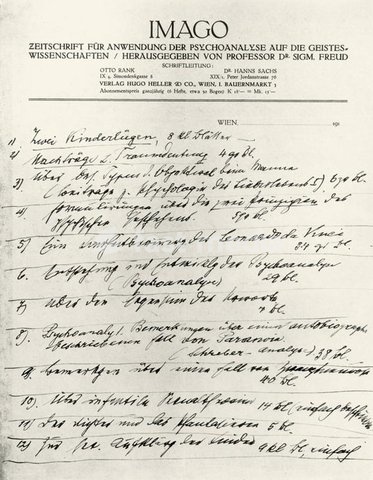 IMAGO
ZEITSCHRIFT FÜR ANWENDUNG DER PSYCHOANALYSE AUF DIE GEISTES-
WISSENSCHAFTEN / HERAUSGEGEBEN VON PROFESSOR DR SIGM. FREUD
SCHRIFTLEITUNG:
OTTO RANK
IX 3, Simondenkgasse 8
DR HANNS SACHS
XIX/1, Peter Jordanstrasse 76
VERLAG HUGO HELLER © CO., WIEN, I. BAUERNMARKT 3
Abonnementspreis ganzjährig (6 Hefte, etwa 30 Bogen) K 18'— = Mk. 15'—
WIEN, 191
1) Zwei Kinderlügen, 8 Blätter
2) Nachträge z. Traumdeutung 4 Bl.
3) Über Typus Objektwahl beim Manne
(Beiträge z. Psychologie des Liebeslebens)
4) Formulierungen über die zwei Prinzipien des
psychischen Geschehens.
5) Ein des Leonardo da Vinci
6. und der Psychoanalyse
(Psychoanalyse) 29 bl.
7) Über den Gegensinn der Urworte
8) Psychoanalyt. Bemerkungen über einen autobiograph.
beschriebenen Fall von Paranoia
(Schreber-Analyse) 38 bl.
9. Bemerkungen über einen Fall von
40 Bl
10) Über infantile Sexualtheorien 14 Bl (einfach
11) Der Dichter und das Phantasieren 5 bl.
12) Zur sex. Aufklärg der Kinder 9 Bl, einfach